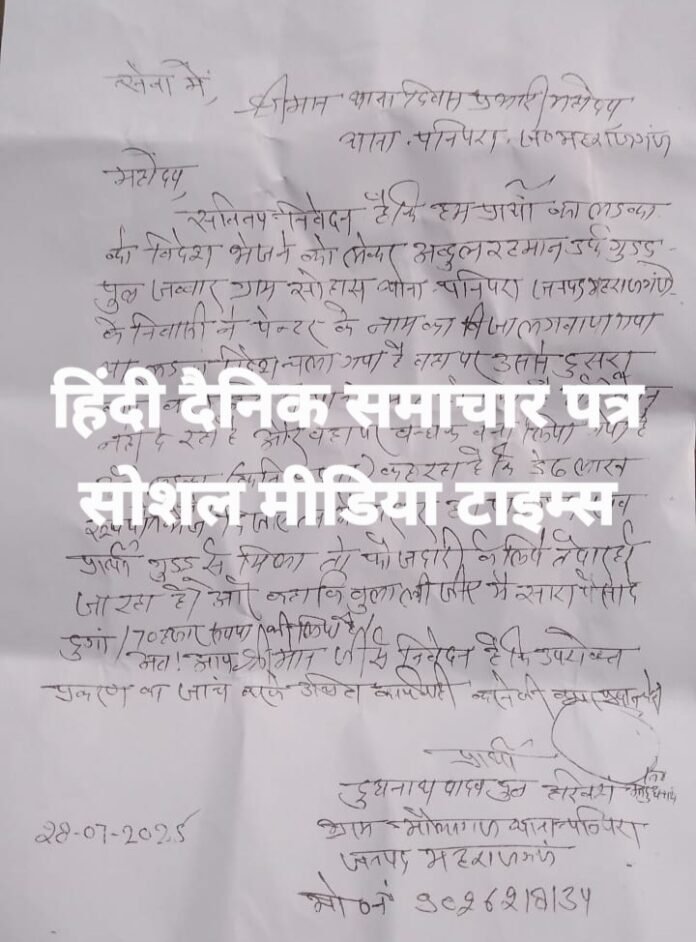 सेवा में,
श्रीमान थाना दिवस प्रभारी महोदय
थाना पनियरा जि० महराजगंज
महोदय,
सविनय निवेदन है कि हम प्रार्थी का लड़का
को विदेश भेजने को लेकर अब्दुल रहमान उर्फ गुड्डू
पुत्र जब्बार ग्राम सोहास थाना पनियरा जनपद महराजगंज
के निवासी ने पेन्टर के नाम का विजा लगवाया गया
विदेश चला गया है वहा पर उसे दुसरा
हिंदी दैनिक समाचार पत्र
नही दे रहा है और वहा पर बन्धक बना लिया गया है
कह रहा है कि डेढ लाख
सोशल मीडिया टाइम्स
प्रार्थी गुड्डू से मिला तो फौजदारी के लिये तैयार हो
जा रहा है। और कहा कि बुला लो और मै सारा पैसा दे
दुगां 170 हजार रूपया लिया है
अतः आप श्रीमान जी से निवेदन है कि उपरोक्त
प्रकरण का जांच करके उचित कार्यवाही करने की कृपा
प्रार्थी
दुधनाथ यादव पुत्र हरिवंश
ग्राम थाना पनियरा
जनपद महराजगंज
28-07-2025
मो०नं 9026218134